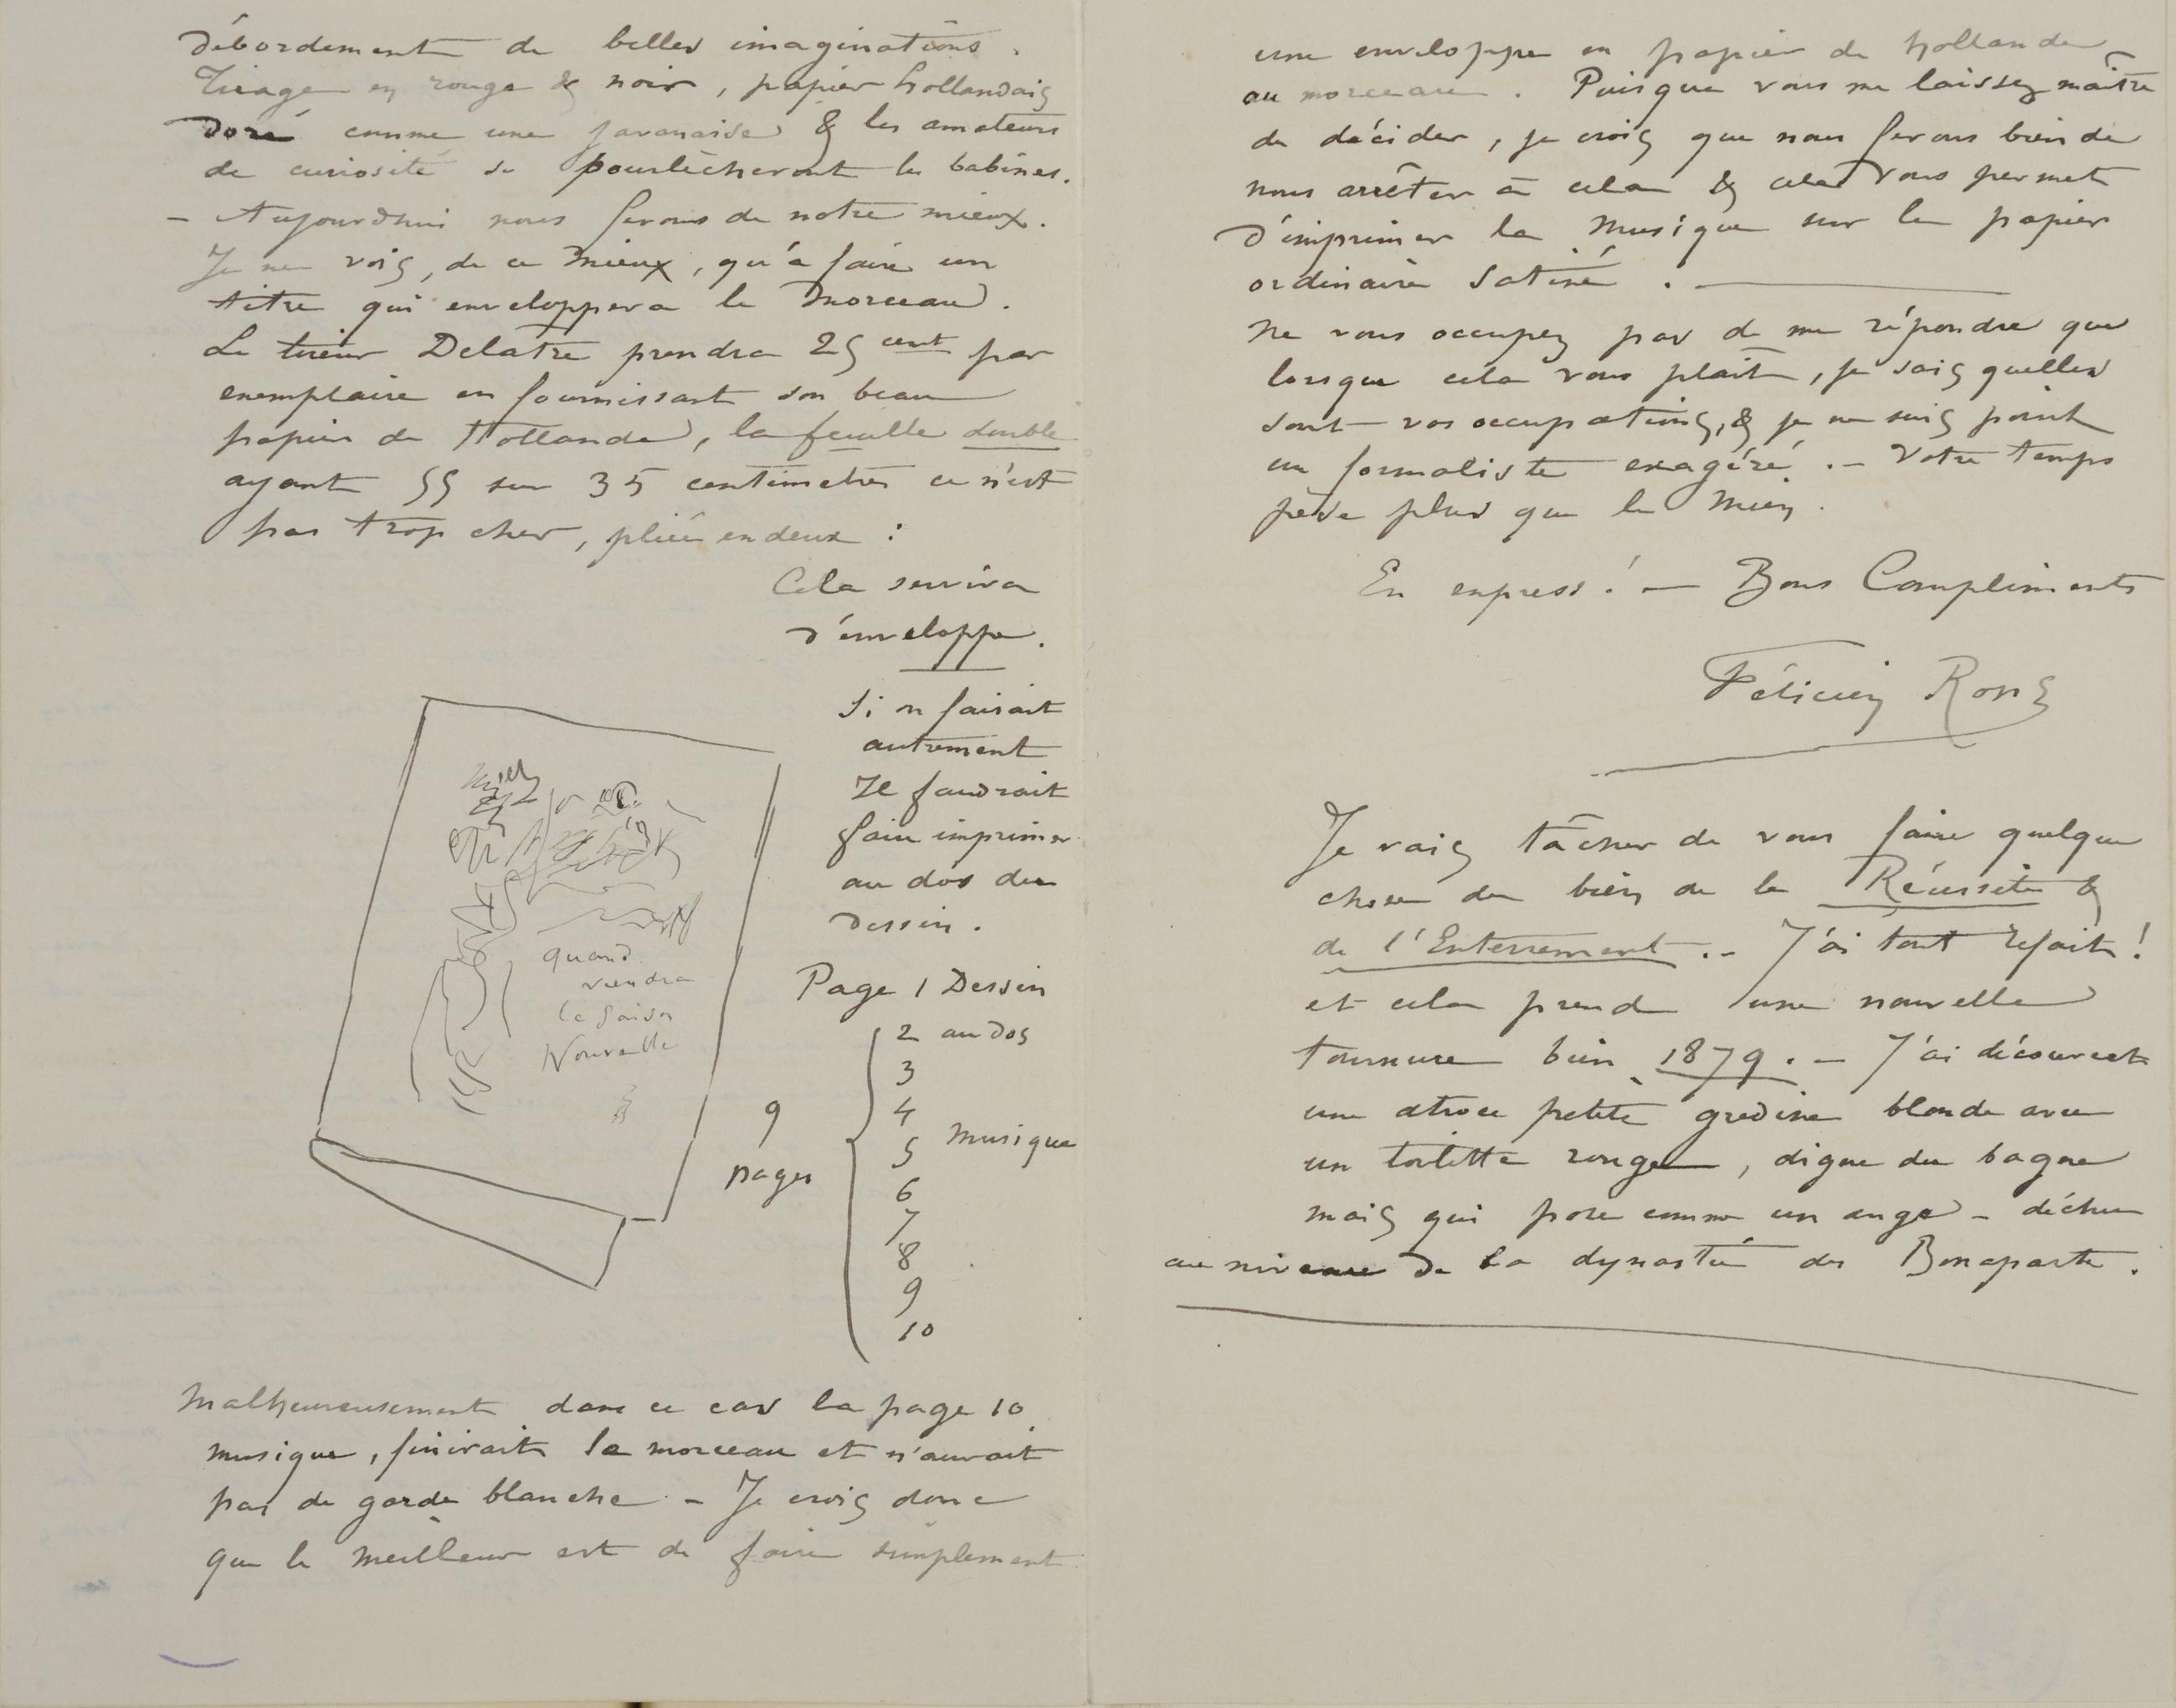 débordement de belles imaginations.
Tirage en rouge & noir, papier hollandais
doré comme une javanaise & les amateurs
de curiosité se pourlècheront les babines.
– Aujourd'hui nous ferons de notre mieux.
Je ne vois, de ce mieux, qu'à faire un
titre qui enveloppera le morceau.
Le tireur Delatre prendra 25 cent par
exemplaire en fournissant son beau
papier de Hollande, la feuille double
ayant 55 sur 35 centimetres ce n'est
pas trop cher, pliée en deux :
Cela servira
d'enveloppe.
Si on faisait
autrement
Il faudrait
faire imprimer
au dos du
dessin.
quand
viendra
la saison
Nouvelle
Page 1 Dessin
2 au dos
3
4
5 musique
6
7
8
9
10
9
pages
Malheureusement dans ce cas la page 10
musique, finirait le morceau et n'aurait
pas de garde blanche – Je crois donc
que le meilleur est de faire simplement
une enveloppe en papier de hollande
au morceau. Puisque vous me laissez maître
de décider, je crois que nous ferons bien de
nous arrêter à cela & cela vous permet
d'imprimer la musique sur le papier
ordinaire satiné. —
Ne vous occupez pas de me répondre que
lorsque cela vous plait, je sais quelles
sont vos occupations, & je ne suis point
un formaliste exagéré. – Votre temps
pèse plus que le mien.
En express ! – Bons Compliments
Félicien Rops
Je vais tâcher de vous faire quelque
chose de bien de la Réussite &
de l'Enterrement. – J'ai tout refait !
et cela prend une nouvelle
tournure bien 1879. – J'ai découvert
une atroce petite gredine blonde avec
un toilette rouge, digne du bagne
mais qui pose comme un ange – déchu
au niveau de la dynastie des Bonaparte.